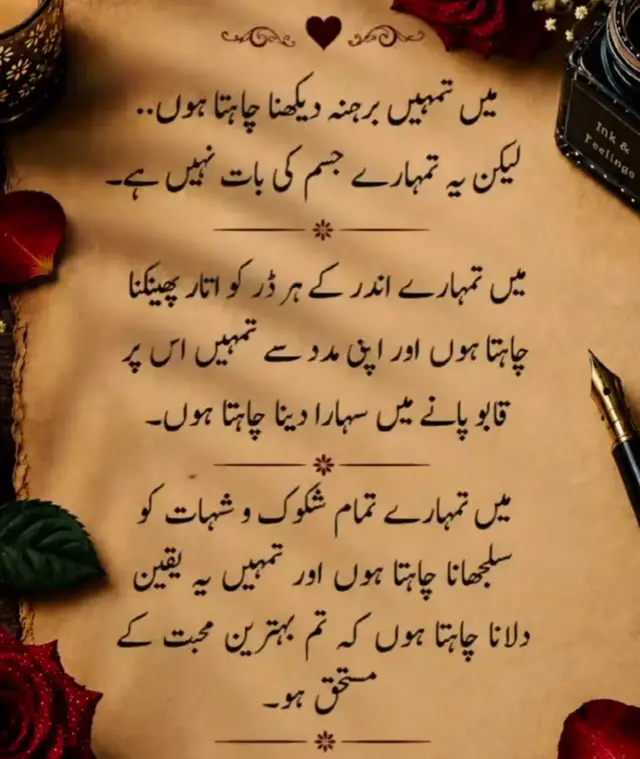 میں تمہیں برہنہ دیکھنا چاہتا ہوں..
لیکن یہ تمہارے جسم کی بات نہیں ہے۔
میں تمہارے اندر کے ہر ڈر کو اتار پھینکنا
چاہتا ہوں اور اپنی مدد سے تمہیں اس پر
قابو پانے میں سہارا دینا چاہتا ہوں۔
میں تمہارے تمام شکوک و شبہات کو
سلجھانا چاہتا ہوں اور تمہیں یہ یقین
دلانا چاہتا ہوں کہ تم بہترین محبت کے
مستحق ہو۔
Ink &
Feelings